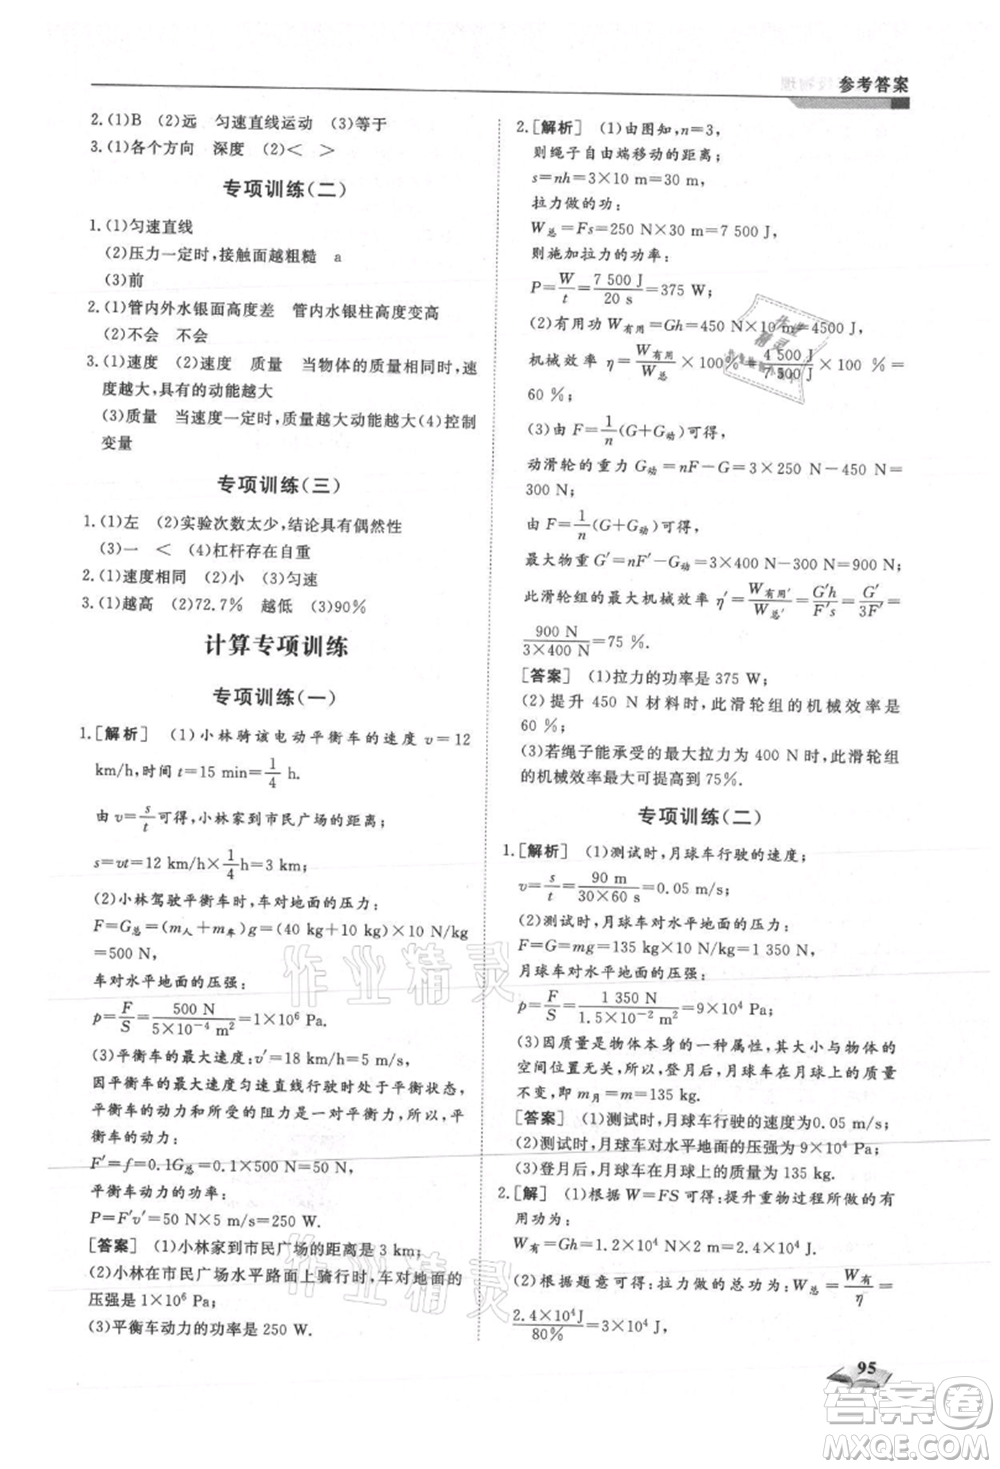 参考答案
2.(1)B (2)远 匀速直线运动 (3)等于
3.(1)各个方向 深度 (2)< >
专项训练(二)
1.(1)匀速直线
(2)压力一定时,接触面越粗糙 a
(3)前
2.(1)管内外水银面高度差 管内水银柱高度变高
(2)不会 不会
3.(1)速度 (2)速度 质量 当物体的质量相同时,速
度越大,具有的动能越大
(3)质量 当速度一定时,质量越大动能越大(4)控制
变量
专项训练(三)
1.(1)左 (2)实验次数太少,结论具有偶然性
(3)一 < (4)杠杆存在自重
2.(1)速度相同 (2)小 (3)匀速
3.(1)越高 (2)72.7% 越低 (3)90%
计算专项训练
专项训练(一)
1.[解析] (1)小林骑该电动平衡车的速度 v=12
km/h,时间 t=15 min=1/4 h.
由 v=s/t可得,小林家到市民广场的距离:
s=vt=12 km/h×1/4 h=3 km;
(2)小林驾驶平衡车时,车对地面的压力:
F=G总=(m人+m车)g=(40 kg+10 kg)×10 N/kg
=500 N,
车对水平地面的压强:
p=F/S=500 N/5×10⁻⁴ m²=1×10⁶ Pa.
(3)平衡车的最大速度:v′=18 km/h=5 m/s,
因平衡车的最大速度匀速直线行驶时处于平衡状态,
平衡车的动力和所受的阻力是一对平衡力,所以,平
衡车的动力:
F′=f=0.1G总=0.1×500 N=50 N,
平衡车动力的功率:
P=F′v′=50 N×5 m/s=250 W.
[答案] (1)小林家到市民广场的距离是 3 km;
(2)小林在市民广场水平路面上骑行时,车对地面的
压强是 1×10⁶ Pa;
(3)平衡车动力的功率是 250 W.
2.[解析] (1)由图知,n=3,
则绳子自由端移动的距离:
s=nh=3×10 m=30 m,
拉力做的功:
W总=Fs=250 N×30 m=7 500 J,
则施加拉力的功率:
P=W/t=7 500 J/20 s=375 W;
(2)有用功 W有用=Gh=450 N×10 m=4500 J,
机械效率 η=W有用/W总×100%=4 500 J/7 500 J×100 %=
60 %;
(3)由 F=1/n(G+G动)可得,
动滑轮的重力 G动=nF-G=3×250 N-450 N=
300 N,
由 F=1/n(G+G动)可得,
最大物重 G′=nF′-G动=3×400 N-300 N=900 N;
此滑轮组的最大机械效率 η′=W有用′/W总′=G′h/F′s=G′/3F′=
900 N/3×400 N=75 %.
[答案] (1)拉力的功率是 375 W;
(2)提升 450 N 材料时,此滑轮组的机械效率是
60 %;
(3)若绳子能承受的最大拉力为 400 N 时,此滑轮组
的机械效率最大可提高到 75%.
专项训练(二)
1.[解析] (1)测试时,月球车行驶的速度;
v=s/t=90 m/30×60 s=0.05 m/s;
(2)测试时,月球车对水平地面的压力:
F=G=mg=135 kg×10 N/kg=1 350 N,
月球车对水平地面的压强:
p=F/S=1 350 N/1.5×10⁻² m²=9×10⁴ Pa;
(3)因质量是物体本身的一种属性,其大小与物体的
空间位置无关,所以,登月后,月球车的质量
不变,即 m月=m=135 kg.
[答案] (1)测试时,月球车行驶的速度为0.05 m/s;
(2)测试时,月球车对水平地面的压强为 9×10⁴ Pa;
(3)登月后,月球车的质量为 135 kg.
2.[解] (1)根据 W=FS 可得:提升重物过程所做的有
用功为:
W有=Gh=1.2×10⁴ N×2 m=2.4×10⁴ J,
(2)根据题意可得:拉力做的总功为:W总=W有/η=
2.4×10⁴J/80%=3×10⁴ J,
95
作业精灵
作业精灵
答案圈
MXQE.COM